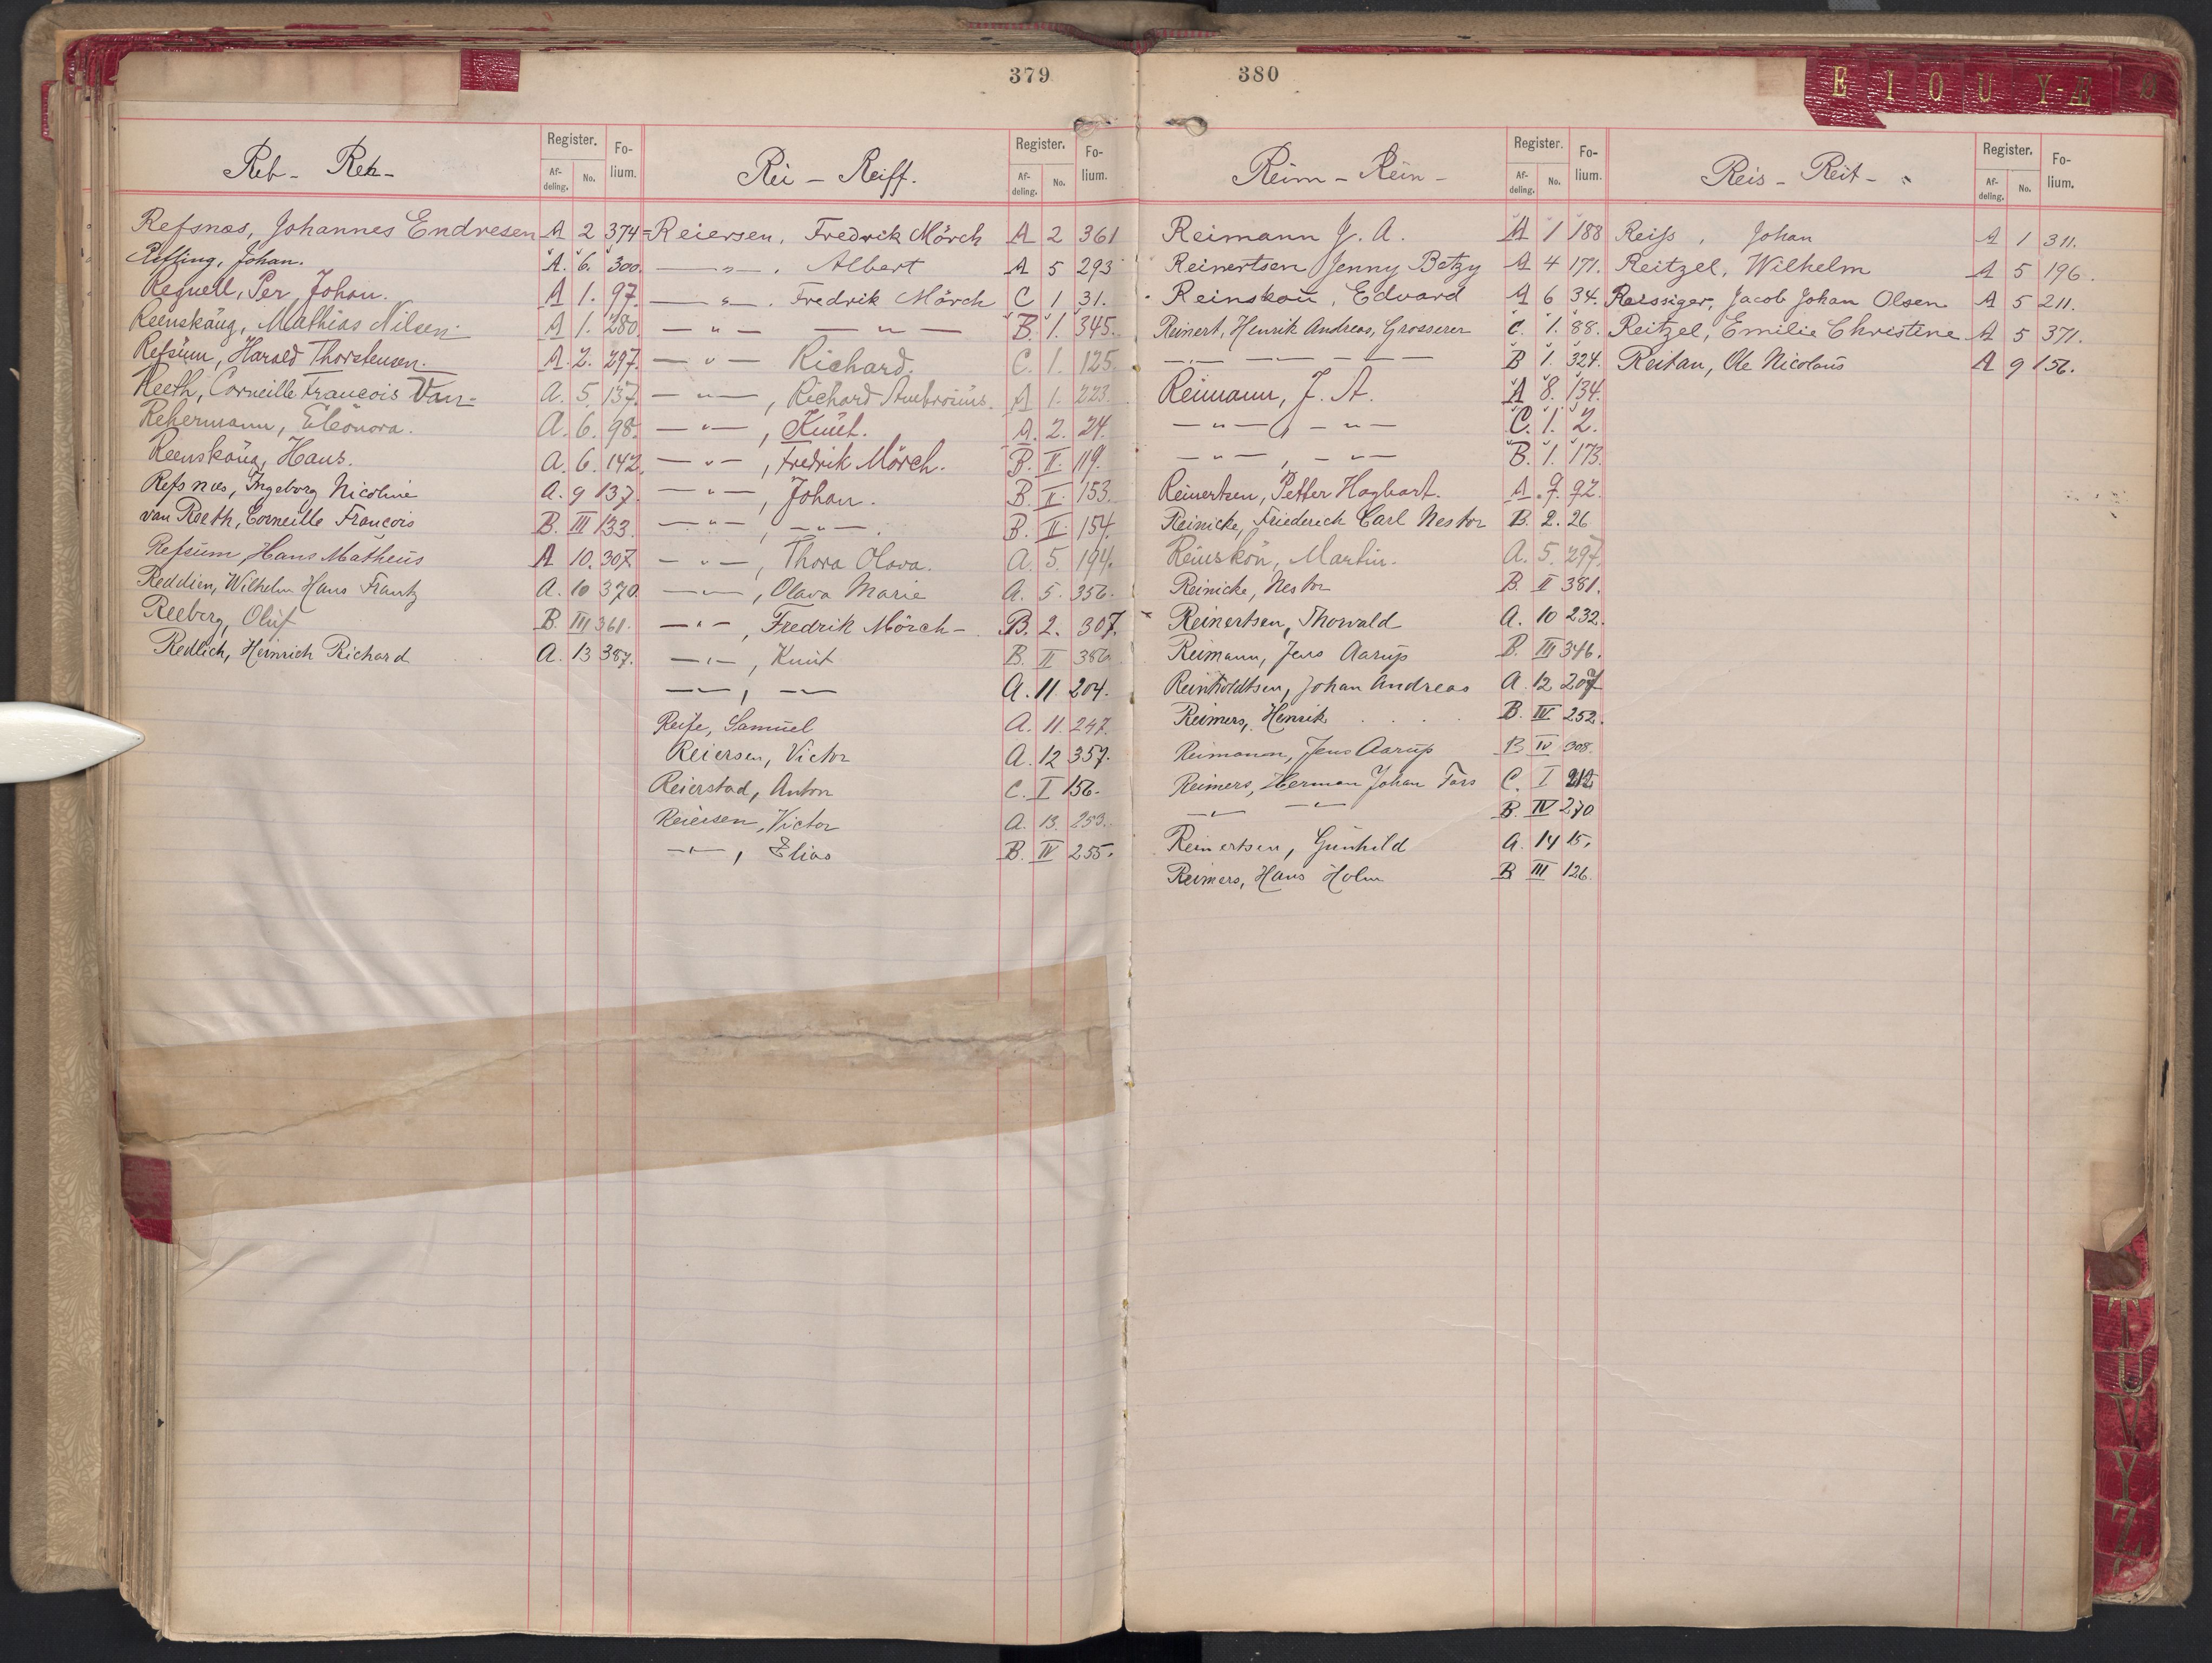 379
Reb - Reh -
Register. Afdeling. No. Folium.
Refsnæs, Johannes Endresen A 2 374
Refling, Johan. A. 6. 300.
Regnell, Per Johan. A 1. 97.
Reenskaug, Mathias Nilsen A 1. 280
Refsum, Harald Thorstensen. A. 2. 297.
Reeth, Corneille Francois Van - A. 5. 137.
Rehermann, Eleonora. A. 6. 98.
Reenskaug, Hans. A. 6. 142.
Refsnæs, Ingeborg Nicoline A. 9 137.
van Reeth, Corneille Francois B. III 133.
Refsum, Hans Matheus A 10. 307
Reddien, Wilhelm Hans Frantz A. 10 370
Reeberg, Oluf B. III 361.
Redlich, Heinrich Richard A. 13 387.
Rei - Reiff.
Register. Afdeling. No. Folium.
Reiersen, Fredrik Mörch A 2 361
— " — . Albert A 5 293
— " — . Fredrik Mörch C 1 31.
— " — — " — B. 1. 345.
— " — Richard. C. 1. 125
— " — , Richard Ambrosius. A 1. 223.
— " — , Knut. A. 2. 24.
— " — , Fredrik Mörch. B. II. 119.
— " — , Johan. B. II. 153.
— " — , — " — . B. II. 154.
— " — , Thora Olava. A. 5. 194.
— " — , Olava Marie A. 5. 356.
— " — , Fredrik Mörch - B. 2. 307.
— " — , Knut B. II 386
— " — , — " — A. 11. 204.
Reife, Samuel A. 11. 247.
Reiersen, Victor A. 12 357.
Reierstad, Anton C. I 156.
Reiersen, Victor A. 13. 253.
— " — , Elias B. IV 255.
380
E I O U Y-Æ Ø
Reim - Rein -
Register. Afdeling. No. Folium.
Reimann J. A. A 1 188
Reinertsen Jenny Betzy A 4 171.
Reinskou, Edvard A 6 34.
Reinert, Henrik Andreas, Grosserer C. 1. 88.
— " — — " — — — B 1. 324.
Reimann, J. A. A 8. 134.
— " — , — " — C. 1. 2.
— " — , — " — B. 1. 173.
Reinertsen, Petter Hagbart. A. 9. 92.
Reinicke, Friederich Carl Nestor B. 2. 26
Reinskou, Martin. A. 5. 297.
Reinicke, Nestor B. II 381.
Reinertsen, Thorvald A. 10 232.
Reimann, Jens Aarup B. III 346.
Reinholdtsen, Johan Andreas A. 12 207
Reimers, Henrik B. IV 252.
Reimann, Jens Aarup B IV 308.
Reimers, Herman Johan Foss C. I 212
— " — — " — B. IV 270
Reinertsen, Gunhild A. 14 15.
Reimers, Hans Holm B III 126.
Reis - Reit -
Register. Afdeling. No. Folium.
Reiss, Johan A 1 311.
Reitzel, Wilhelm A 5 196.
Reissiger, Jacob Johan Olsen A 5 211.
Reitzel, Emilie Christine A 5 371.
Reitan, Ole Nicolaus A 9 156.
T
U
V
Y
Z